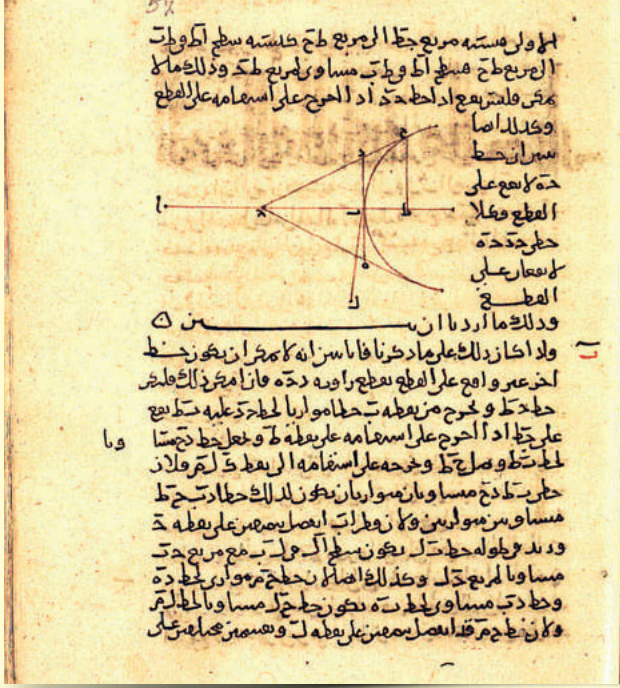 الاولى فنسبه مربع حط الى مربع طح كنسبه سطح اط فى طب
الى مربع طح فسطح اط فى طب مساوى لمربع طح وذلك ما لا
يمكن فليس يقع اذا خط حد اذا اخرج على استقامه على القطع
وكذلك ايضا
نبين ان خط
حه لا يقع على
القطع فكلا
خطى حد حه
لا يقعان على
القطع
ا ح ب ط د ه ك
وذلك ما اردنا ان نبين
واذ كان ذلك على ما ذكرنا فانا نبين انه لا يمكن ان يكون خط
اخر غير واقع على القطع يقطع زاويه دحه فان امكن ذلك فليكن
خط حط ونخرج من نقطه ب خطا موازيا لخط حد عليه بط يقع
على حط اذا اخرج على استقامه على نقطه ط ونجعل خط دح مسا ويا
لخط بط ونصل حط ونخرجه على استقامه الى نقط ك ل م فلان
خطى بط دح متساويان متوازيان يكون لذلك خطا دب حط
متساويين متوازيين ولان قطر اب انفصل بنصفين على نقطه ح
وزيد فى طوله خط بل يكون سطح ال فى لب مع مربع حب
مساويا لمربع حل وكذلك ايضا لان خط حم موازى لخط ده
وخط دب مساوى لخط به يكون خط حل مساويا لخط لم
ولان خط حم قد انفصل بنصفين على نقطه ل وبقسمين مختلفين على